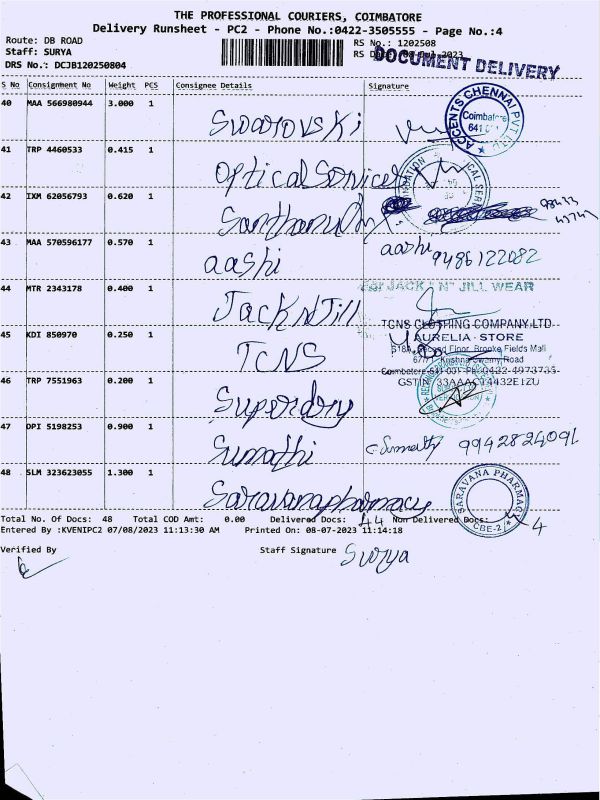 THE PROFESSIONAL COURIERS, COIMBATORE
Delivery Runsheet - PC2 - Phone No.:0422-3505555 - Page No.:4
Route: DB ROAD
Staff: SURYA
DRS No.: DCJB120250804
RS No.: 1202508
RS
2023
DOCUMENT DELIVERY
S No Consignment No Weight PCS Consignee Details Signature
40 MAA 566980944 3.000 1 Swarovski
ACCENTS CHENNAI PVT LTD
Coimbatore
641
41 TRP 4460533 0.415 1 Optical Services
42 IXM 62056793 0.620 1
43 MAA 570596177 0.570 1 aashi aashi 9486122082
44 MTR 2343178 0.400 1 Jack N Jill
For JACK "N" JILL WEAR
45 KDI 850970 0.250 1 TCNS
TCNS CLOTHING COMPANY LTD
AURELIA - STORE
Second Floor, Brooke Fields Mall
67/71, Krishna Swamy Road
Coimbatore-641 001 Ph: 0422-4973735
46 TRP 7551963 0.200 1 Superdry
47 DPI 5198253 0.900 1 Sumathi 9942824091
48 SLM 323623055 1.300 1 Saravanapharmacy
SARAVANA PHARMACY
CBE-2
Total No. Of Docs: 48 Total COD Amt: 0.00 Delivered Docs: 44 Non Delivered Docs: 4
Entered By :KVENIPC2 07/08/2023 11:13:30 AM Printed On: 08-07-2023 11:14:18
Verified By Staff Signature Surya